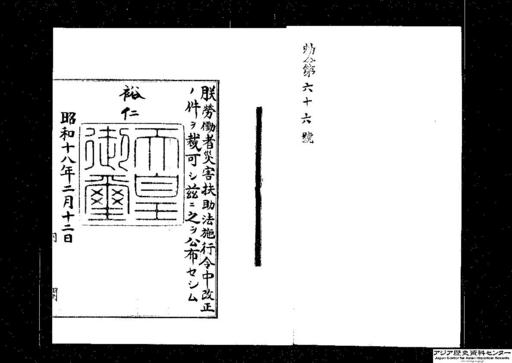 勅令第六十六號
朕勞働者災害扶助法施行令中改正
ノ件ヲ裁可シ茲ニ之ヲ公布セシム
裕仁
天皇御璽
昭和十八年二月十二日
アジア歴史資料センター
Japan Center for Asian Historical Records